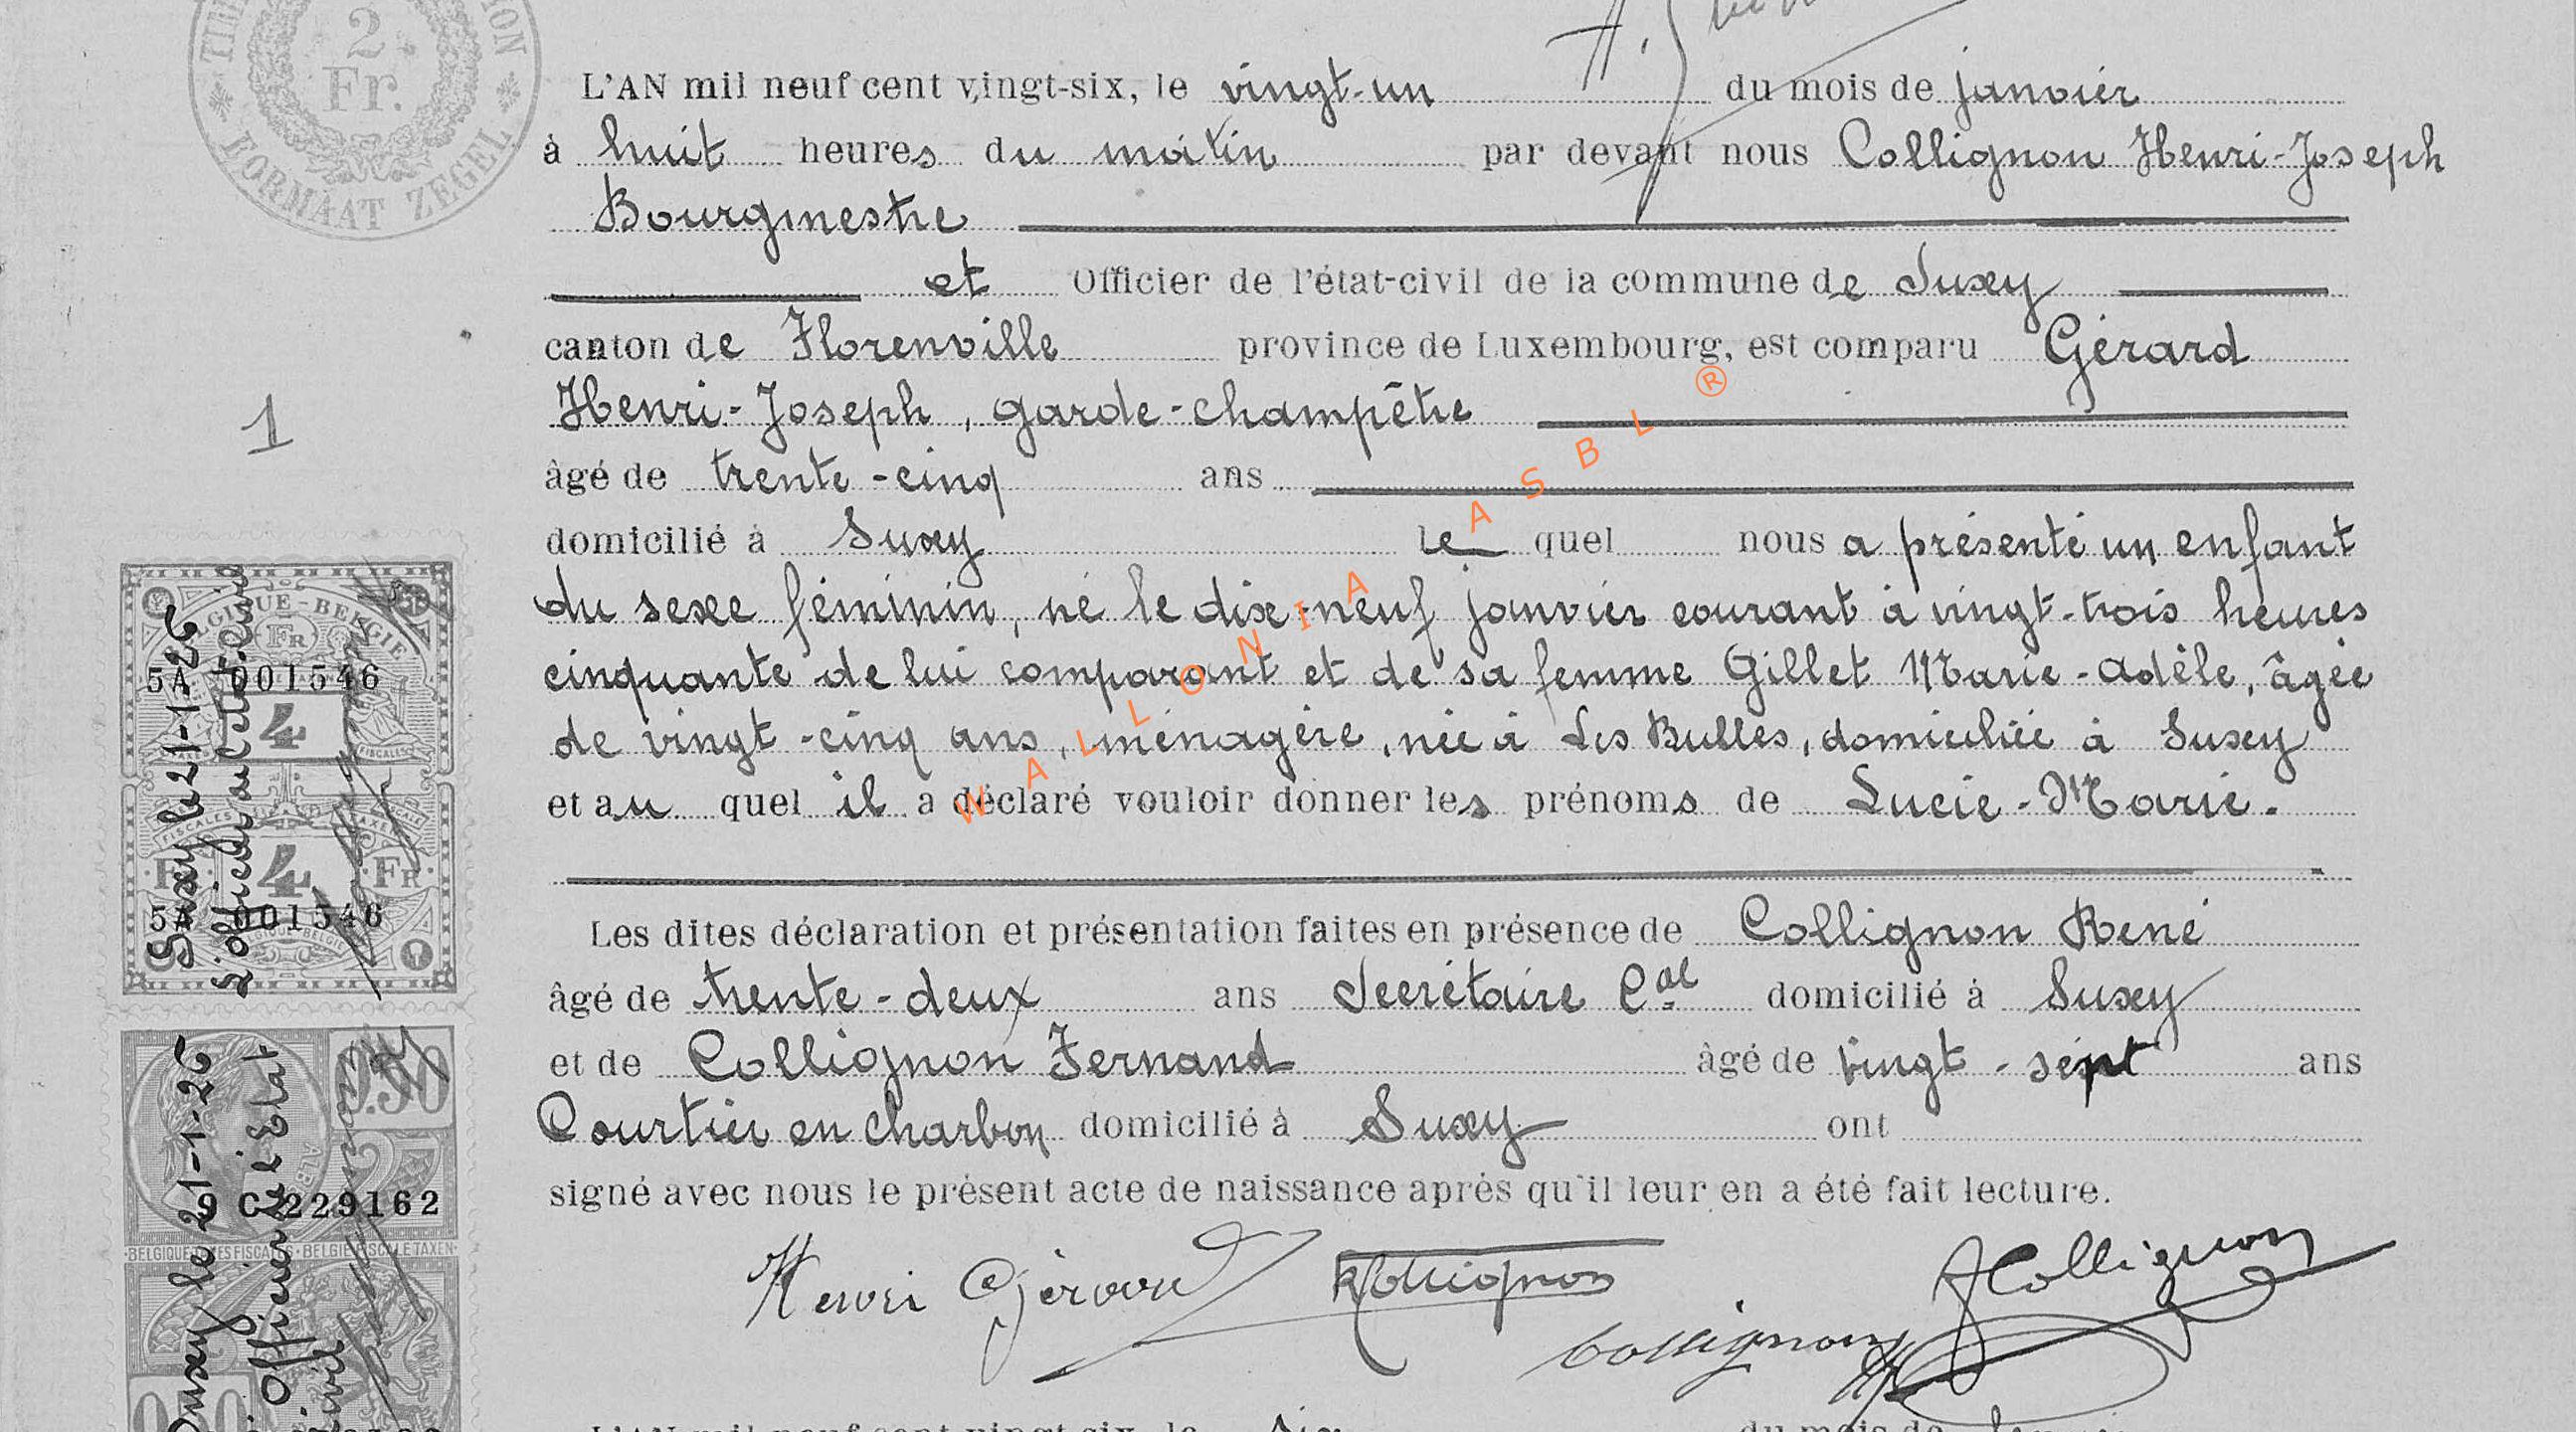 2
Fr.
FORMAAT ZEGEL
L'AN mil neuf cent vingt-six, le vingt-un du mois de janvier
à huit heures du matin par devant nous Collignon Henri-Joseph
Bourgmestre
et Officier de l'état-civil de la commune de Suxy
canton de Florenville province de Luxembourg, est comparu Gérard
Henri-Joseph, garde-champêtre
âgé de trente-cinq ans
domicilié à Suxy le quel nous a présenté un enfant
du sexe féminin, né le dix-neuf janvier courant à vingt-trois heures
cinquante de lui comparant et de sa femme Gillet Marie-Adèle, âgée
de vingt-cinq ans, ménagère, née à Les Bulles, domiciliée à Suxy
et au quel il a déclaré vouloir donner les prénoms de Lucie-Marie.
Les dites déclaration et présentation faites en présence de Collignon René
âgé de trente-deux ans Secrétaire Cal domicilié à Suxy
et de Collignon Fernand âgé de vingt-sept ans
Courtier en charbon domicilié à Suxy ont
signé avec nous le présent acte de naissance après qu'il leur en a été fait lecture.
Henri Gérard RCollignon FCollignon
Collignon H
1
BELGIQUE-BELGIE
FR
5A 001546
4
4
FR
5A 001546
Suxy le 21-1-26
L'officier de l'état-civil
0.50
9 C 229162
BELGIQUE TAXES FISCALES · BELGIE FISCALE TAXEN
Suxy le 21-1-26
Officier de l'Etat
civil
WALLONIA ASBL ®
L'AN mil neuf cent vingt-six, le six du mois de